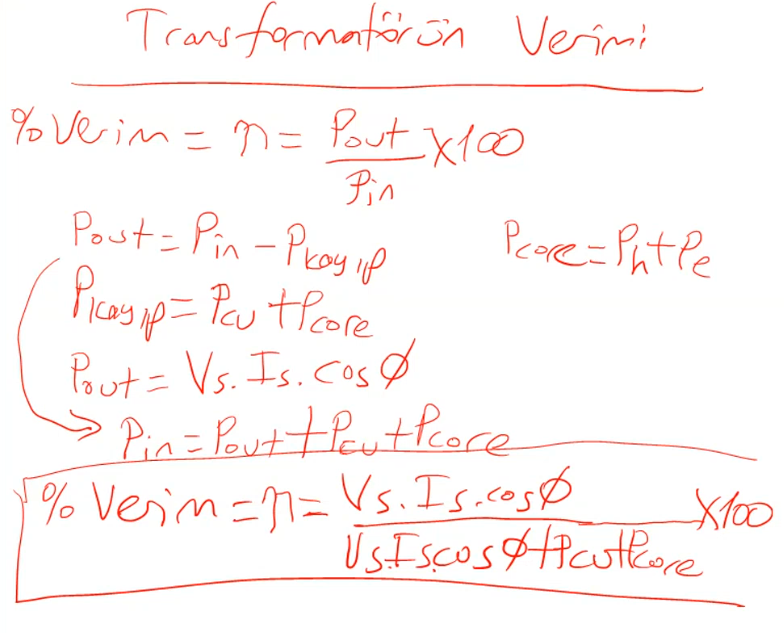 Transformatörün Verimi
% Verim = η = Pout / Pin x100
Pout = Pin - Pkayıp
Pcore = Ph + Pe
Pkayıp = Pcu + Pcore
Pout = Vs. Is. cos Ø
Pin = Pout + Pcu + Pcore
% Verim = η = Vs. Is. cos Ø / Vs.Is.cos Ø + Pcu + Pcore x100